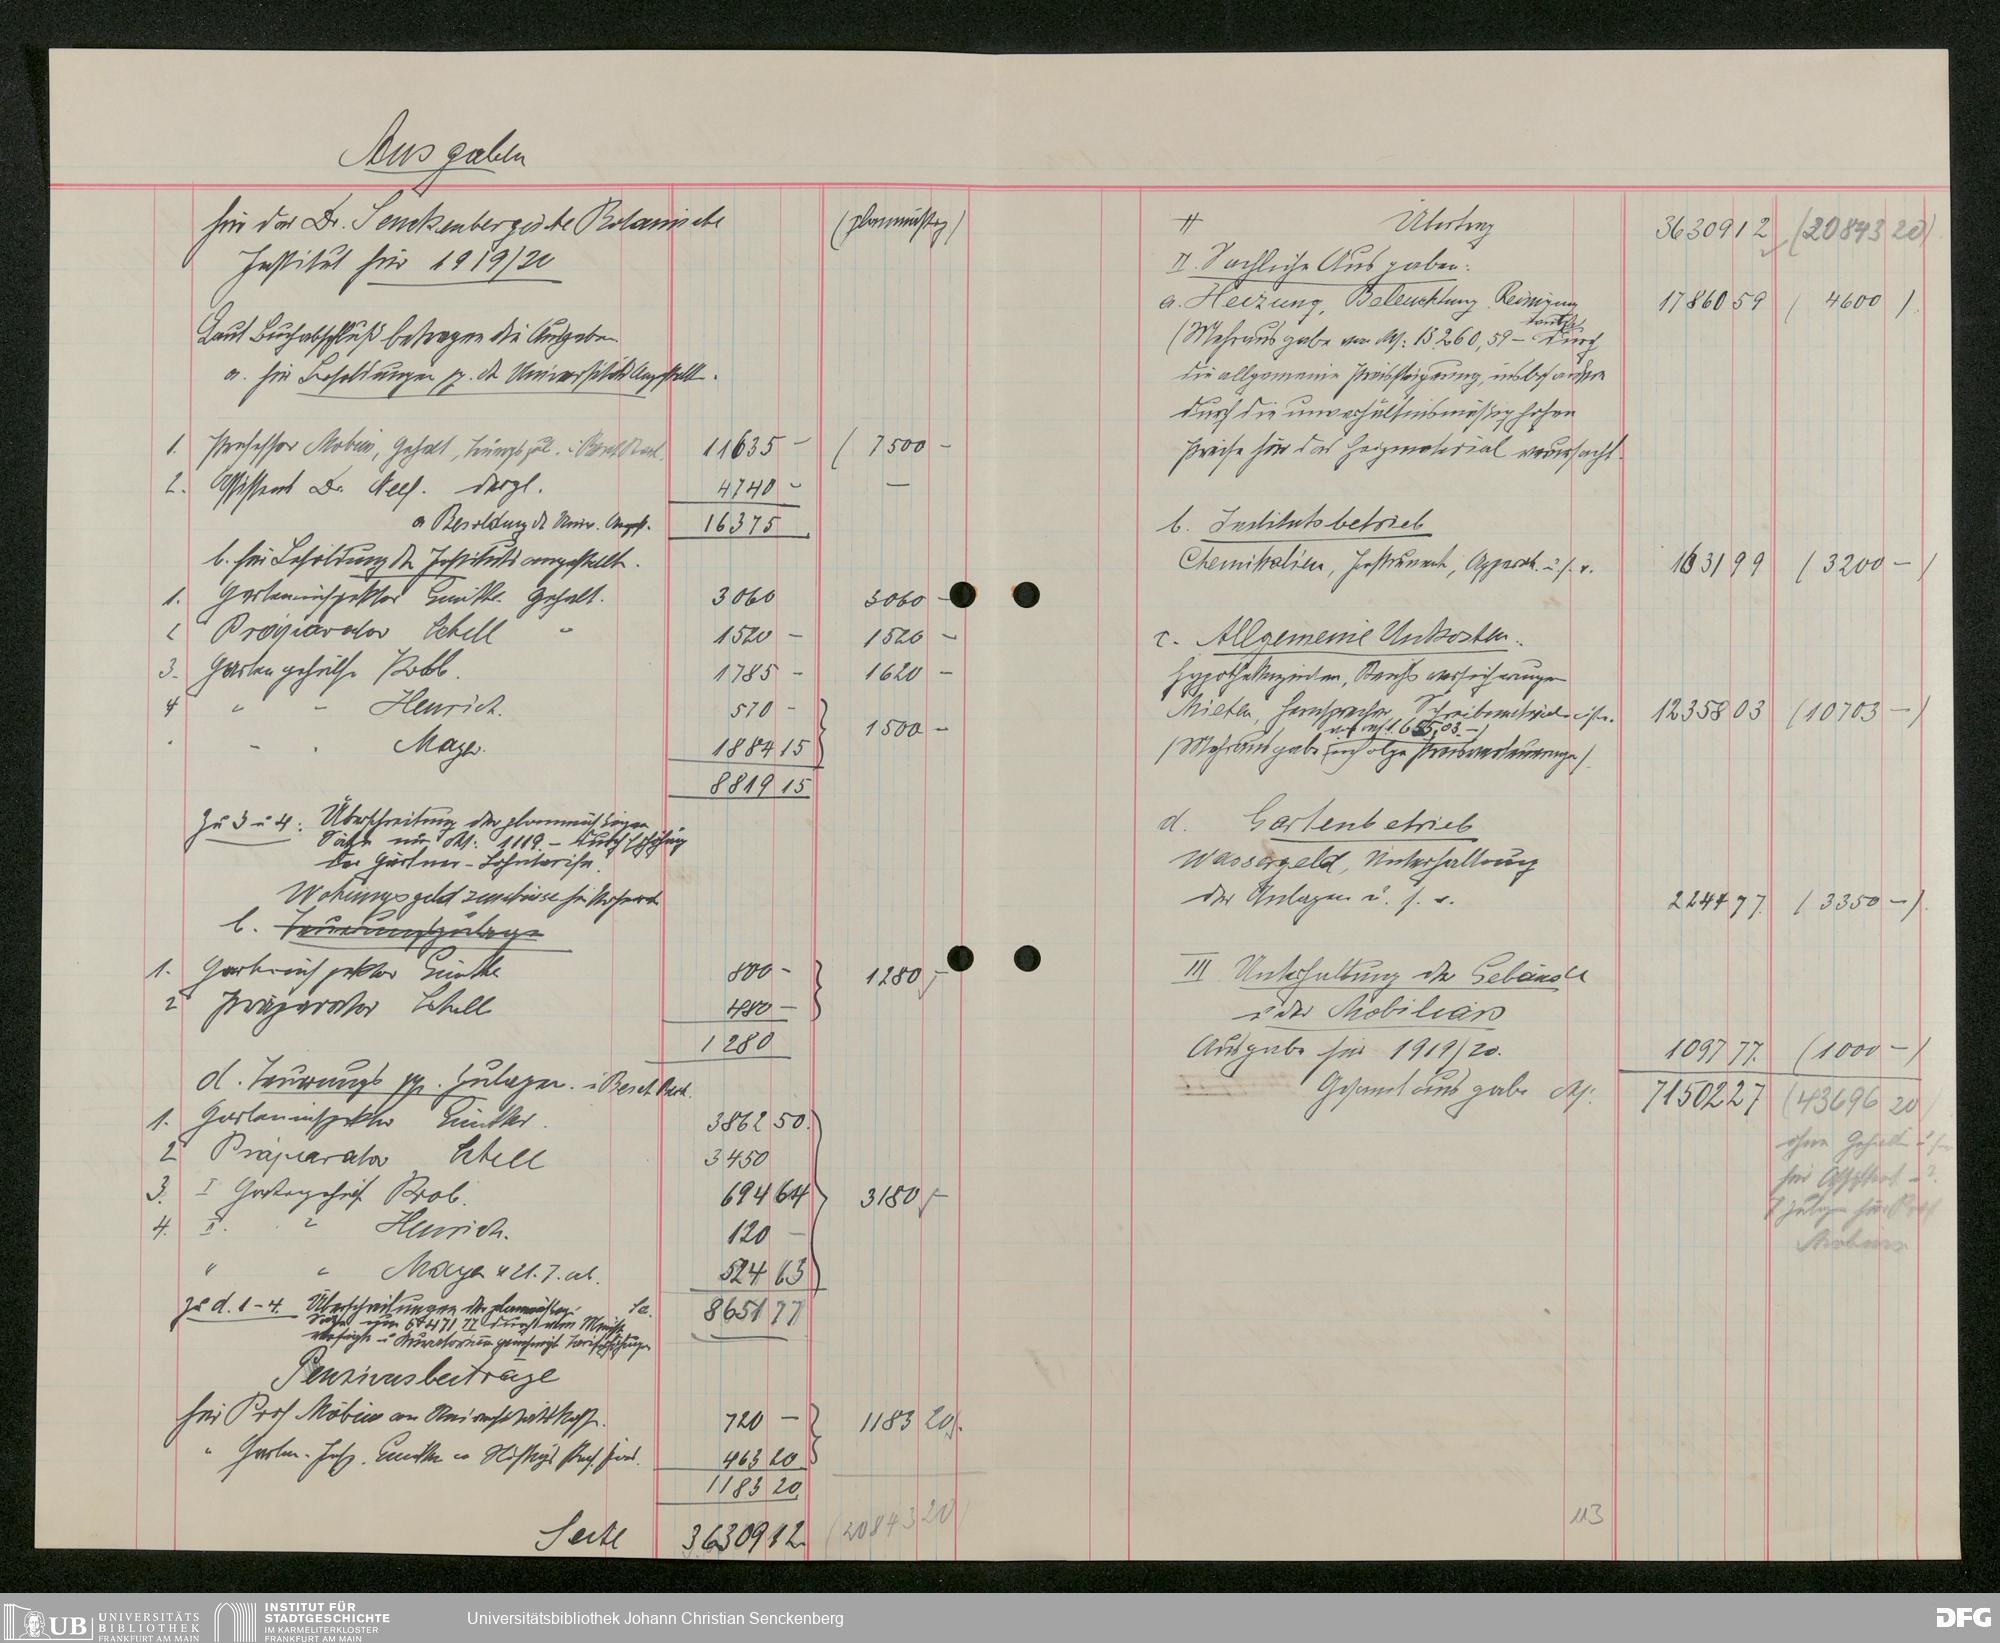 Ausgaben
für das Dr. Senckenbergische Botanische (planmäßig)
Institut für 1919/20
Laut Buchabschluß betragen die Ausgaben
a. für Besoldungen pp. der Universitäts Angestellt.
1. Professor Möbius, Gehalt, 11635 – ( 7500 –
2. Assistent Dr. Neeff. dergl. 4740 – —
a Besoldung d Univ. Angest. 16375
b. für Besoldung der Institutsangestellt.
1. Garteninspektor Günther Gehalt. 3060 3060 –
2 Präparator Schell " 1520 – 1520 –
3. Gartengehülfe Krobb. 1785 – 1620 –
4 " – Henrich. 570 –
1500 –
" – " Mayer. 1884 15
8819 15
Zu 3 u 4: Überschreitung der planmäßigen
Sätze um M: 1119.– durch Erhöhung
der Gärtner-Lohntarife.
Wohnungsgeldzuschüsse für
b. Teuerungszulage
1. Garteninspektor Günther 800 – 1280 –
2 Präparator Schell 480 –
1280
d. Teuerungs pp. Zulagen. u Besch
1. Garteninspektor Günther. 3862 50.
2 Präparator Schell 3450
3. I Gartengehilf. Krob. 694 64 3180 –
4. II. " Henrich. 120 –
" " Mayer v 21.7. ab. 524 63
zu d. 1–4. Überschreitungen der planmäßig. Sa. 8651 77
Sätze um 5471 77 durch vom
u Kuratorium genehmigte Tariferhöhungen
Pensionsbeiträge
für Prof Möbius an Universitätskasse. 720 – 1183 20.
" Garten-Insp. Günther 463 20
1183 20
Seite 36309 12 (20843 20)
Übertrag 36309 12 (20843 20)
II. Sachliche Ausgaben:
a. Heizung, Beleuchtung Reinigung 17860 59 ( 4600 )
(Mehrausgabe von M: 13260,59 – durch
die allgemeine Preissteigerung, insbesondere
durch die unverhältnismässig hohen
Preise für das Heizmaterial verursacht.
b. Institutsbetrieb
Chemikalien, Instrument, Apparat. u. s. w. 1631 99 ( 3200 – )
c. Allgemeine Unkosten.
Hypothekenzinsen, Versicherungen
Mieten, Fernsprecher, Schreibmaterial u.s.w. 12358 03 (10703 – )
1655,03.–)
(Mehrausgabe infolge Preissteuerung).
d. Gartenbetrieb
Wassergeld, Unterhaltung
der Anlagen u. s. w. 2244 77. ( 3350 – ).
III Unterhaltung der Gebäude
u des Mobiliars
Ausgabe für 1919/20. 1097 77. (1000 – )
Gesamtausgabe M: 71502 27 (43696 20)
ohne Gehalt u
für Assistent u.
Zulage für Prof
Möbius
113
UB UNIVERSITÄTS
BIBLIOTHEK
FRANKFURT AM MAIN
INSTITUT FÜR
STADTGESCHICHTE
IM KARMELITERKLOSTER
FRANKFURT AM MAIN
Universitätsbibliothek Johann Christian Senckenberg
DFG